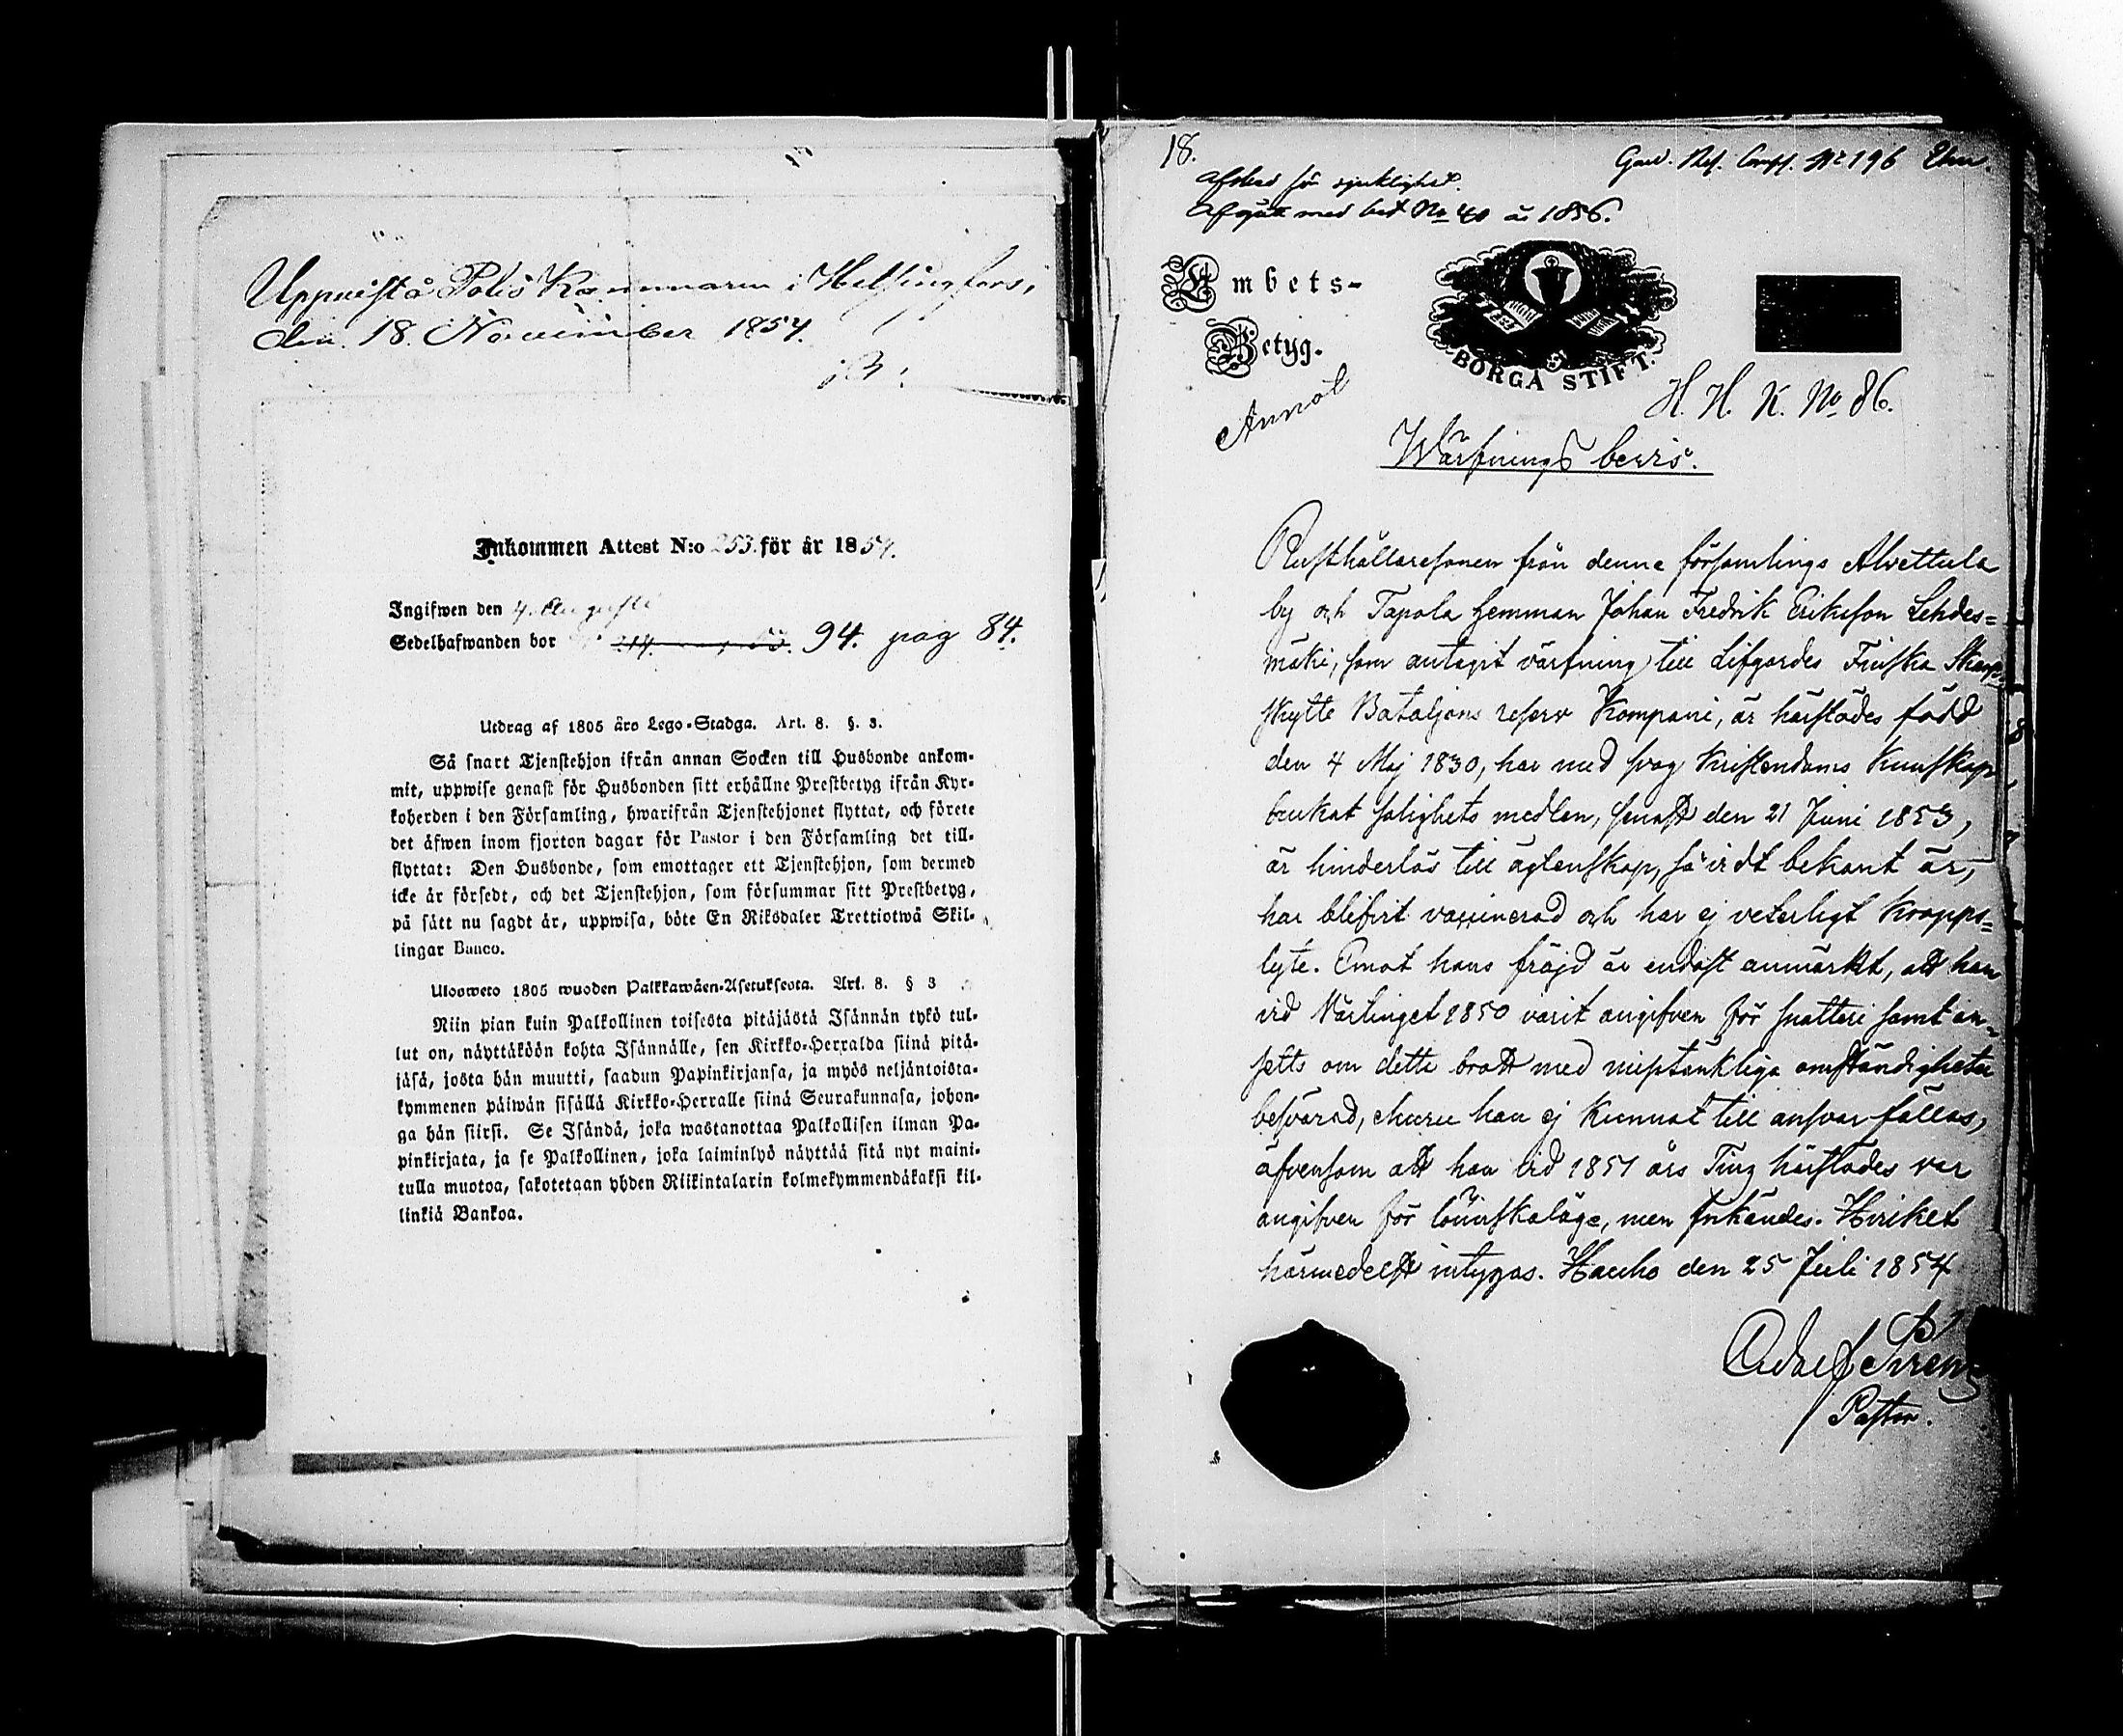 Uppvist å Polis Kammaren i Helsingfors,
den 18. November 1854.
Inkommen Attest N:o 253. för år 1854.
Ingifwen den 4. Augusti
Sedelhafwanden bor 94. pag 84.
Utdrag af 1805 års Lego-Stadga. Art. 8. §. 3.
Så snart Tjenstehjon ifrån annan Socken till Husbonde ankom-
mit, uppwise genast för Husbonden sitt erhållne Prestbetyg ifrån Kyr-
koherden i den Församling, hwarifrån Tjenstehjonet flyttat, och förete
det äfwen inom fjorton dagar för Pastor i den Församling det till-
flyttat: Den Husbonde, som emottager ett Tjenstehjon, som dermed
icke är försedt, och det Tjenstehjon, som försummar sitt Prestbetyg,
på sätt nu sagdt är, uppwisa, böte En Riksdaler Trettiotwå Skil-
lingar Banco.
Ulosweto 1805 wuoden Palkkawäen-Asetuksesta. Art. 8. § 3
Niin pian kuin Palkollinen toisesta pitäjästä Isännän tykö tul-
lut on, näyttäköön kohta Isännälle, sen Kirkko-Herralda siinä pitä-
jäsä, josta hän muutti, saadun Papinkirjansa, ja myös neljäntoista-
kymmenen päiwän sisällä Kirkko-Herralle siinä Seurakunnasa, johon-
ga hän siirsi. Se Isändä, joka wastanottaa Palkollisen ilman Pa-
pinkirjata, ja se Palkollinen, joka laiminlyö näyttää sitä nyt maini-
tulla muotoa, sakotetaan yhden Riikintalarin kolmekymmendäkaksi kil-
linkiä Bankoa.
18.
Gard. Res. Comp. Nr 196
Afsked för sjuklighet.
Afgått med bet No 40 år 1856.
Embets-
Betyg.
BORGÅ STIFT.
H. H. K. No 86.
Värfnings bevis.
Rusthållaresonen från denne församlings Alvettula
by och Tapola hemman Johan Fredrik Eriksson Lehdes=
mäki, som antagit värfning till Lifgardes Finska Skarp=
skytte Bataljons reserv Kompani, är härstädes född
den 4 Maj 1830, har med svag Kristendoms Kunskap
brukat salighets medlen, senast den 21 Juni 1853,
är hinderlös till ägtenskap, så vidt bekant är,
har blifvit vaccinerad och har ej veterligt Kropps=
lyte. Emot hans fräjd är endast anmärkt, att han
vid Vårtinget 1850 varit angifven för snatteri samt an=
setts om detta brott med misstänkliga omständigheter
besvärad, ehuru han ej Kunnat till ansvar fällas,
äfvensom att han vid 1851 års Ting härstädes var
angifven för lönnskaläge, men frikändes. Hvilket
härmedelst intygas. Hauho den 25 Juli 1854
Adolf
Pastor.